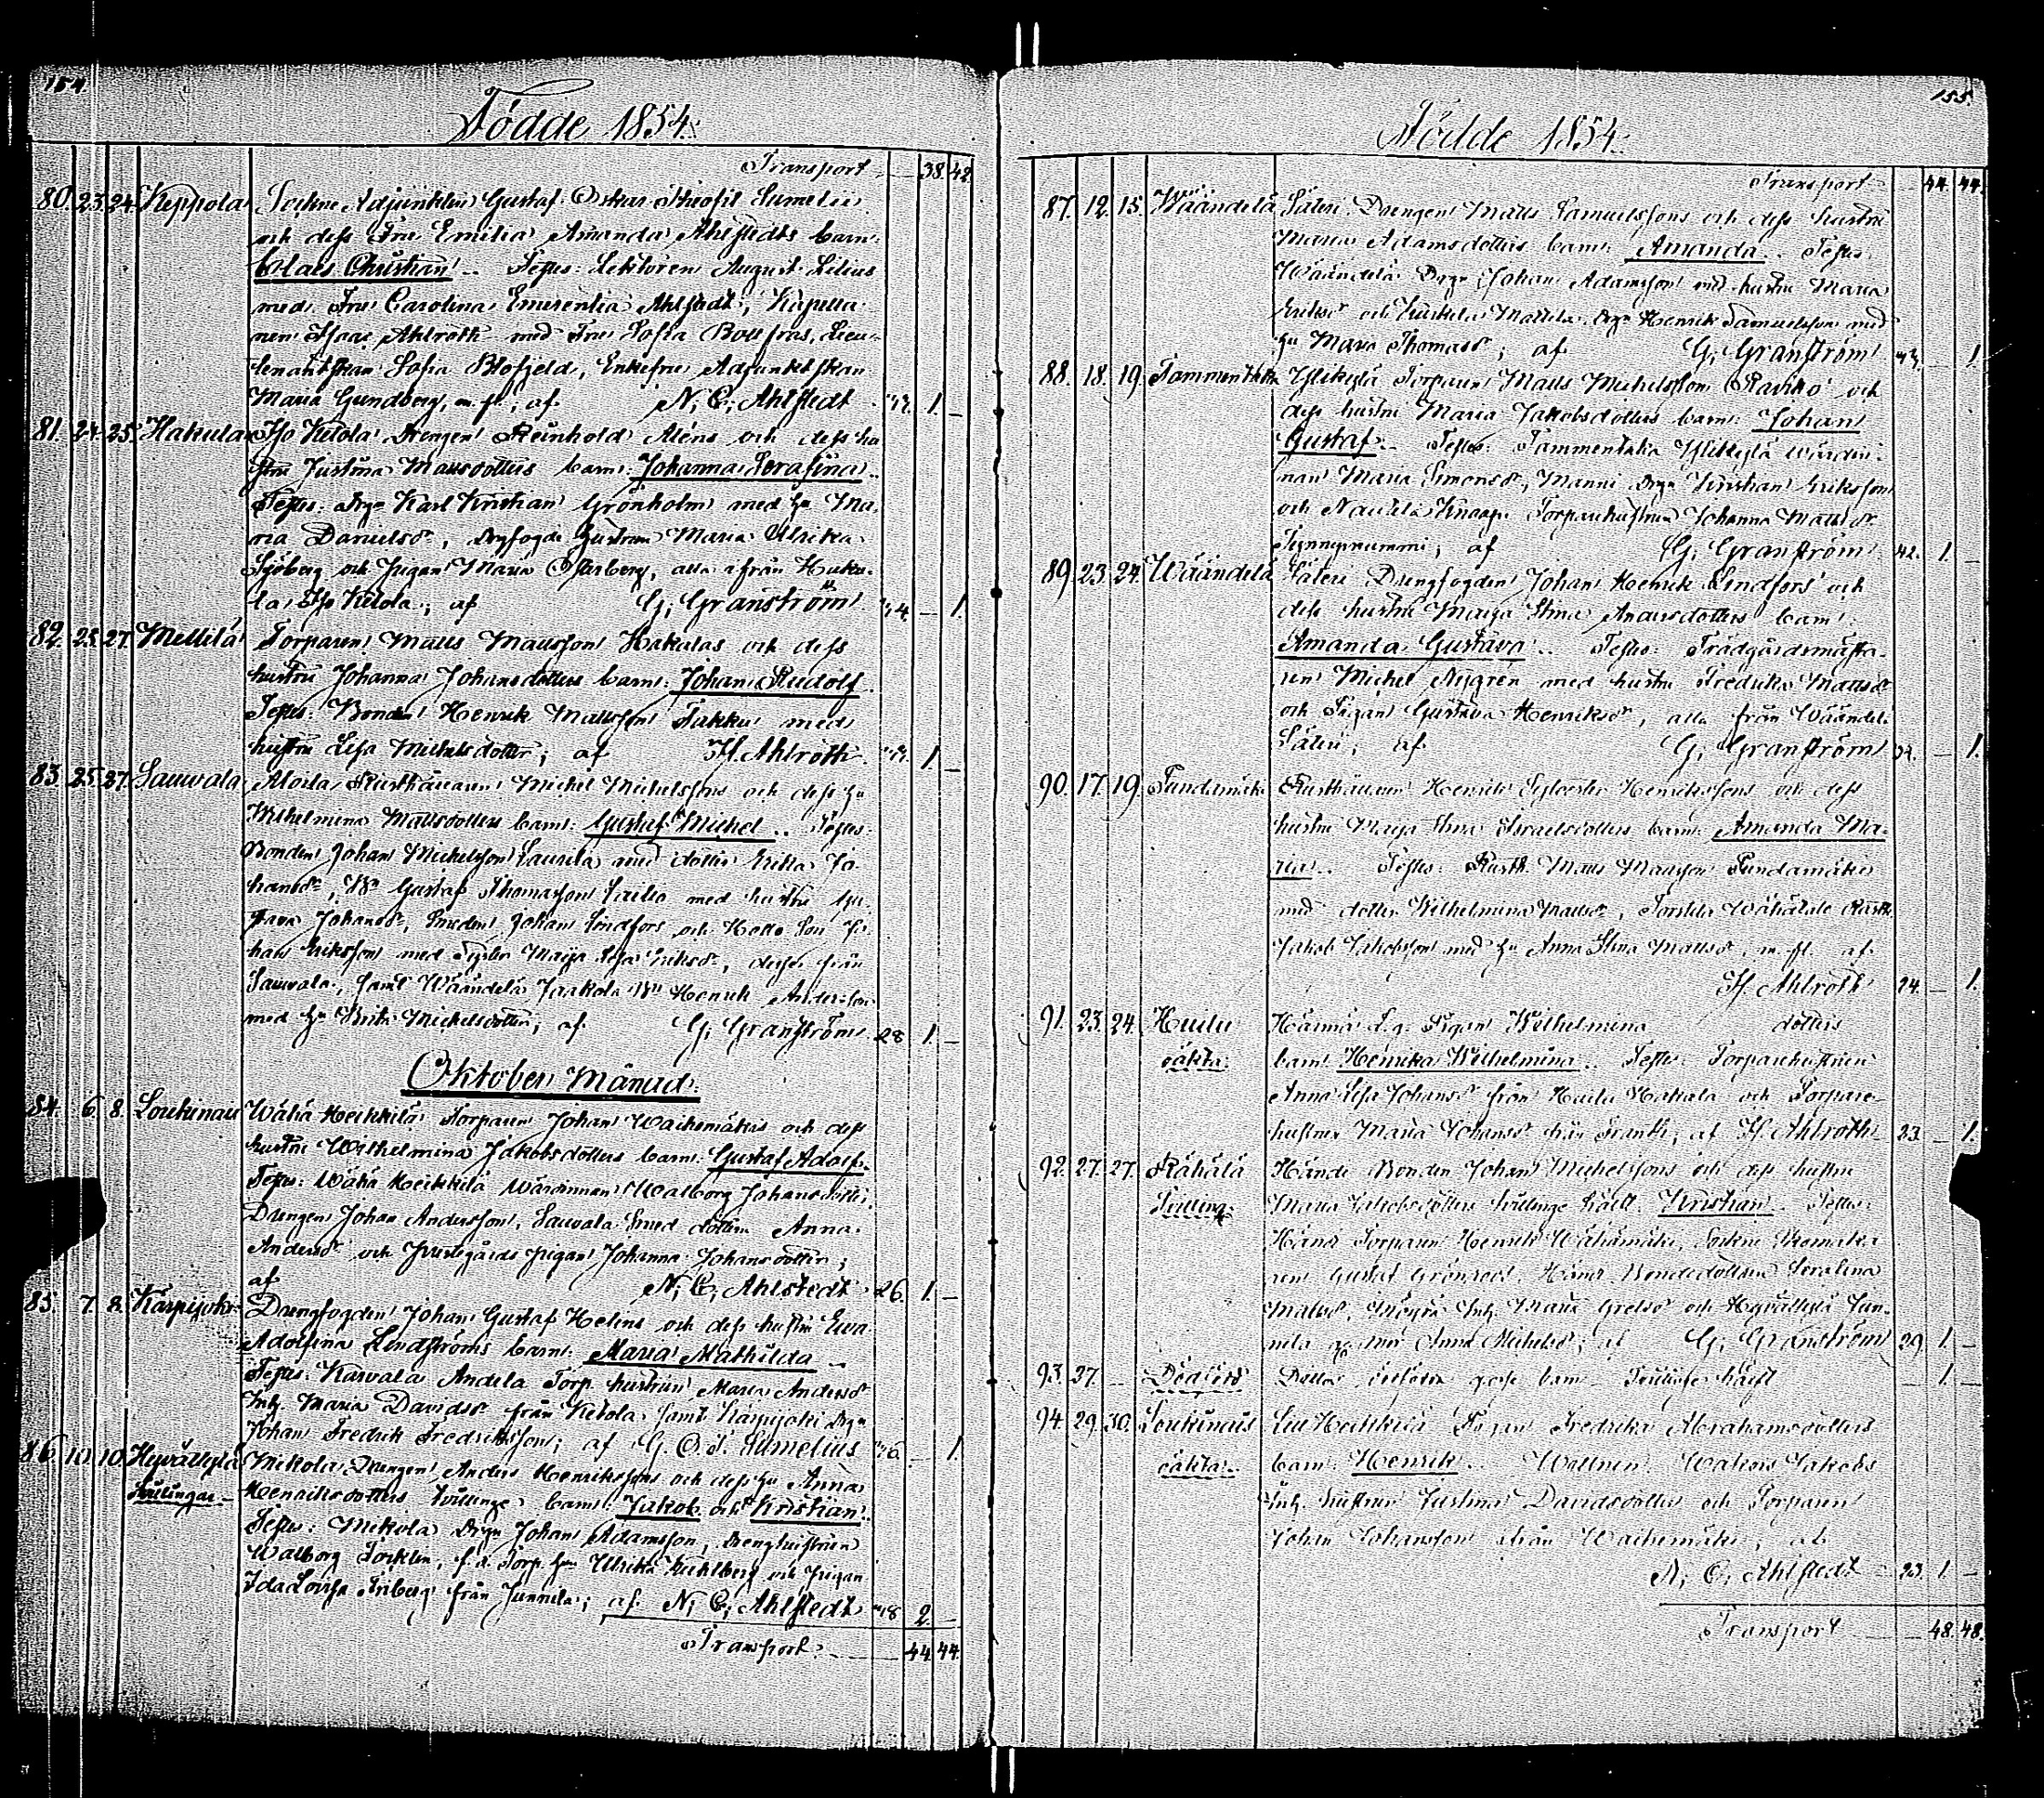 154.
Födde 1854.
Transport 38. 42.
80. 23. 24. Keppola Sockne Adjunkten Gustaf Oskar Theofil Sumelii
och dess Fru Emilia Amanda Ahlstedts barn:
Claes Christian. Testes: Lektoren August Lilius
med Fru Carolina Emerentia Ahlstedt, Kapella-
nen Isaac Ahlroth med Fru Sofia Bonsdorff, Lieu-
tenantskan Sofia Blofjeld, Enkefru Adjunktskan
Maria Lundberg, m. fl.; af N. C. Ahlstedt 1.
81. 24. 25. Hakula Iso Ketola Drengen Reinhold Aléns och dess hu-
stru Justina Mattsdotters barn: Johanna Serafina.
Testes: Drgn Karl Kristian Grönholm med Hu Ma-
ria Danielsdr, Drgfogde Hustrun Maria Ulrika
Sjöberg och Pigan Maria Österberg, alla ifrån Haku-
la Iso Ketola; af G. Granström 1.
82. 25. 27. Mellilä Torparen Matts Mattsson Hakalas och dess
hustru Johanna Johansdotters barn: Johan Rudolf.
Testes: Bonden Henrik Mattsson Takku med
hustru Lisa Michelsdotter; af If. Ahlroth 1.
83. 25. 27. Sauwala Aloila Rusthållaren Michel Michelssons och dess Hu
Wilhelmina Mattsdotters barn: Gustaf Michel. Testes:
Bonden Johan Michelsson Laurila med dotter Erika Jo-
hansdr, Bn Gustaf Thomasson Lailio med hustru Gu-
stava Johansdr, Smeden Johan Lindfors och Son Jo-
han Eriksson med Syster Maija Lisa Eriksdr, desse från
Sauwala, samt Wäändelä Jaakola Bn Henrik Andersson
med Hu Brita Michelsdotter; af G. Granström 28 1.
Oktober Månad.
84. 6. 8. Loukinais Wähä Heikkilä Torparen Johan Waihemäkis och dess
hustru Wilhelmina Jakobsdotters barn: Gustaf Adolf.
Testes: Wähä Heikkilä Wärdinnan Walborg Johansdotter,
Drengen Johan Andersson, Sauwala Smed dottren Anna
Andersdr och Prestgårds Pigan Johanna Johansdotter;
af N. C. Ahlstedt 26. 1.
85. 7. 8. Karpijoki Drengfogden Johan Gustaf Helins och dess hustru Ewa
Adolfina Lindströms barn: Maria Mathilda
Testes: Karwala Andela Torp. hustrun Maria Andersdr
Inh. Maria Davidsdr från Ketola samt Karpijoki Drgn
Johan Fredrik Fredriksson; af G. O. T. Sumelius 1.
86. 10. 10. Hypällylä Mikola Drengen Anders Henrikssons och dess Hu Anna
Twillingar Henriksdotters twillinge barn: Jakob och Kristian.
Testes: Mikola Drgn Johan Adamsson, Drenghustrun
Walborg Söcklin, f. d. Torp. Hun Ulrika Kuhlberg och Pigan
Ida Lovisa Friberg från Junnila; af N. C. Ahlstedt 2.
Transport 44. 44.
155.
Födde 1854.
Transport 44. 44.
87. 12. 15. Wäändelä Säteri Drengen Matts Samuelssons och dess hustru
Maria Adamsdotters barn: Amanda. Testes:
Wäändelä Drgn Johan Adamsson med hustru Maria
Eriksdr och Mattila Drgn Henrik Samuelsson med
Hu Maria Thomasdr; af G. Granström 1.
88. 18. 19. Tammentaka Ylikylä Torparen Matts Michelsson Raviko och
dess hustru Maria Jakobsdotters barn: Johan
Gustaf. Testes: Tammentaka Ylikylä Wärdin-
nan Maria Simonsdr, Manni Drgn Kristian Eriksson
och Naukila Knaapi Torparehustrun Johanna Mattsdr
; af G. Granström 42. 1.
89. 23. 24. Wäändelä Säteri Drengfogden Johan Henrik Lindfors och
dess hustru Maija Stina Andersdotters barn:
Amanda Gustava. Testes: Trädgårdsmästa-
ren Michel Nygren med hustru Fredrika Mattsdr
och Pigan Gustava Henriksdr, alla från Wäändelä
Säteri; af G. Granström 1.
90. 17. 19. Pundamäki Rusthållaren Henrik Sylvester Henrikssons och dess
hustru Maija Stina Israelsdotters barn: Amanda Ma-
ria. Testes: Rusth. Matts Mattsson Pundamäki
med dotter Wilhelmina Mattsdr, Wähätalo Rusth.
Jakob Jakobsson med Hu Anna Stina Mattsdr, m. fl. af
If. Ahlroth 24. 1.
91. 23. 24. Huilu Pigan Wilhelmina dotters
oäkta. barn: Henrika Wilhelmina. Testes: Torparehustrun
Anna Lisa Johansdr från Huilu Hakala och Torpare-
hustrun Maria Johansdr från Frantti; af If. Ahlroth 23. 1.
92. 27. 27. Rähälä Händi Bonden Johan Michelssons och dess hustru
Twilling. Maria Jakobsdotters twillinge hälft: Kristian. Testes:
Händi Torparen Henrik Wähämäki, Sockne Skomaka-
ren Gustaf Grönroos, Händi Bondedottren Serafina
Mattsdr, Inh. Maria Gretsdr och Hypällylä Jun-
nila Anna Michelsdr; af G. Granström 29. 1.
93. 27. Dödfödd Ditto, dödfödt gosse barn Twillinge hälft 1.
94. 29. 30. Loukinais Iso Heikkilä Pigan Fredrika Abrahamsdotters
oäkta. barn: Henrik. Wittnen: Jakobs
Inh. hustrun Justina Davidsdotter och Torparen
Johan Johansson ifrån Waihemäki; af
N. C. Ahlstedt 23. 1.
Transport 48. 48.